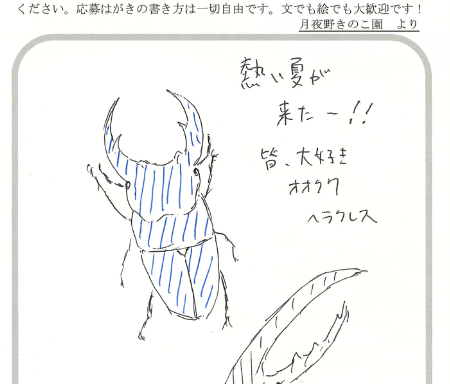 ください。応募はがきの書き方は一切自由です。文でも絵でも大歓迎です！
月夜野きのこ園　より
熱い夏が
来たー!!
皆、大好き
オオクワ
ヘラクレス